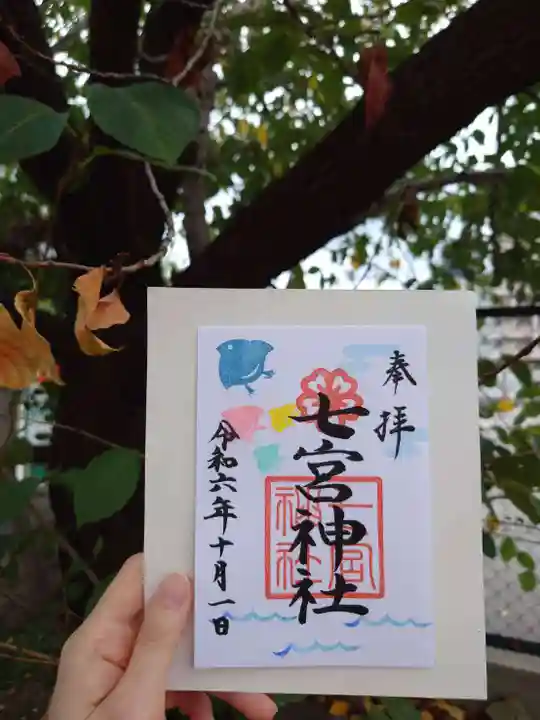 奉拝
七宮神社
七宮神社
令和六年十月一日